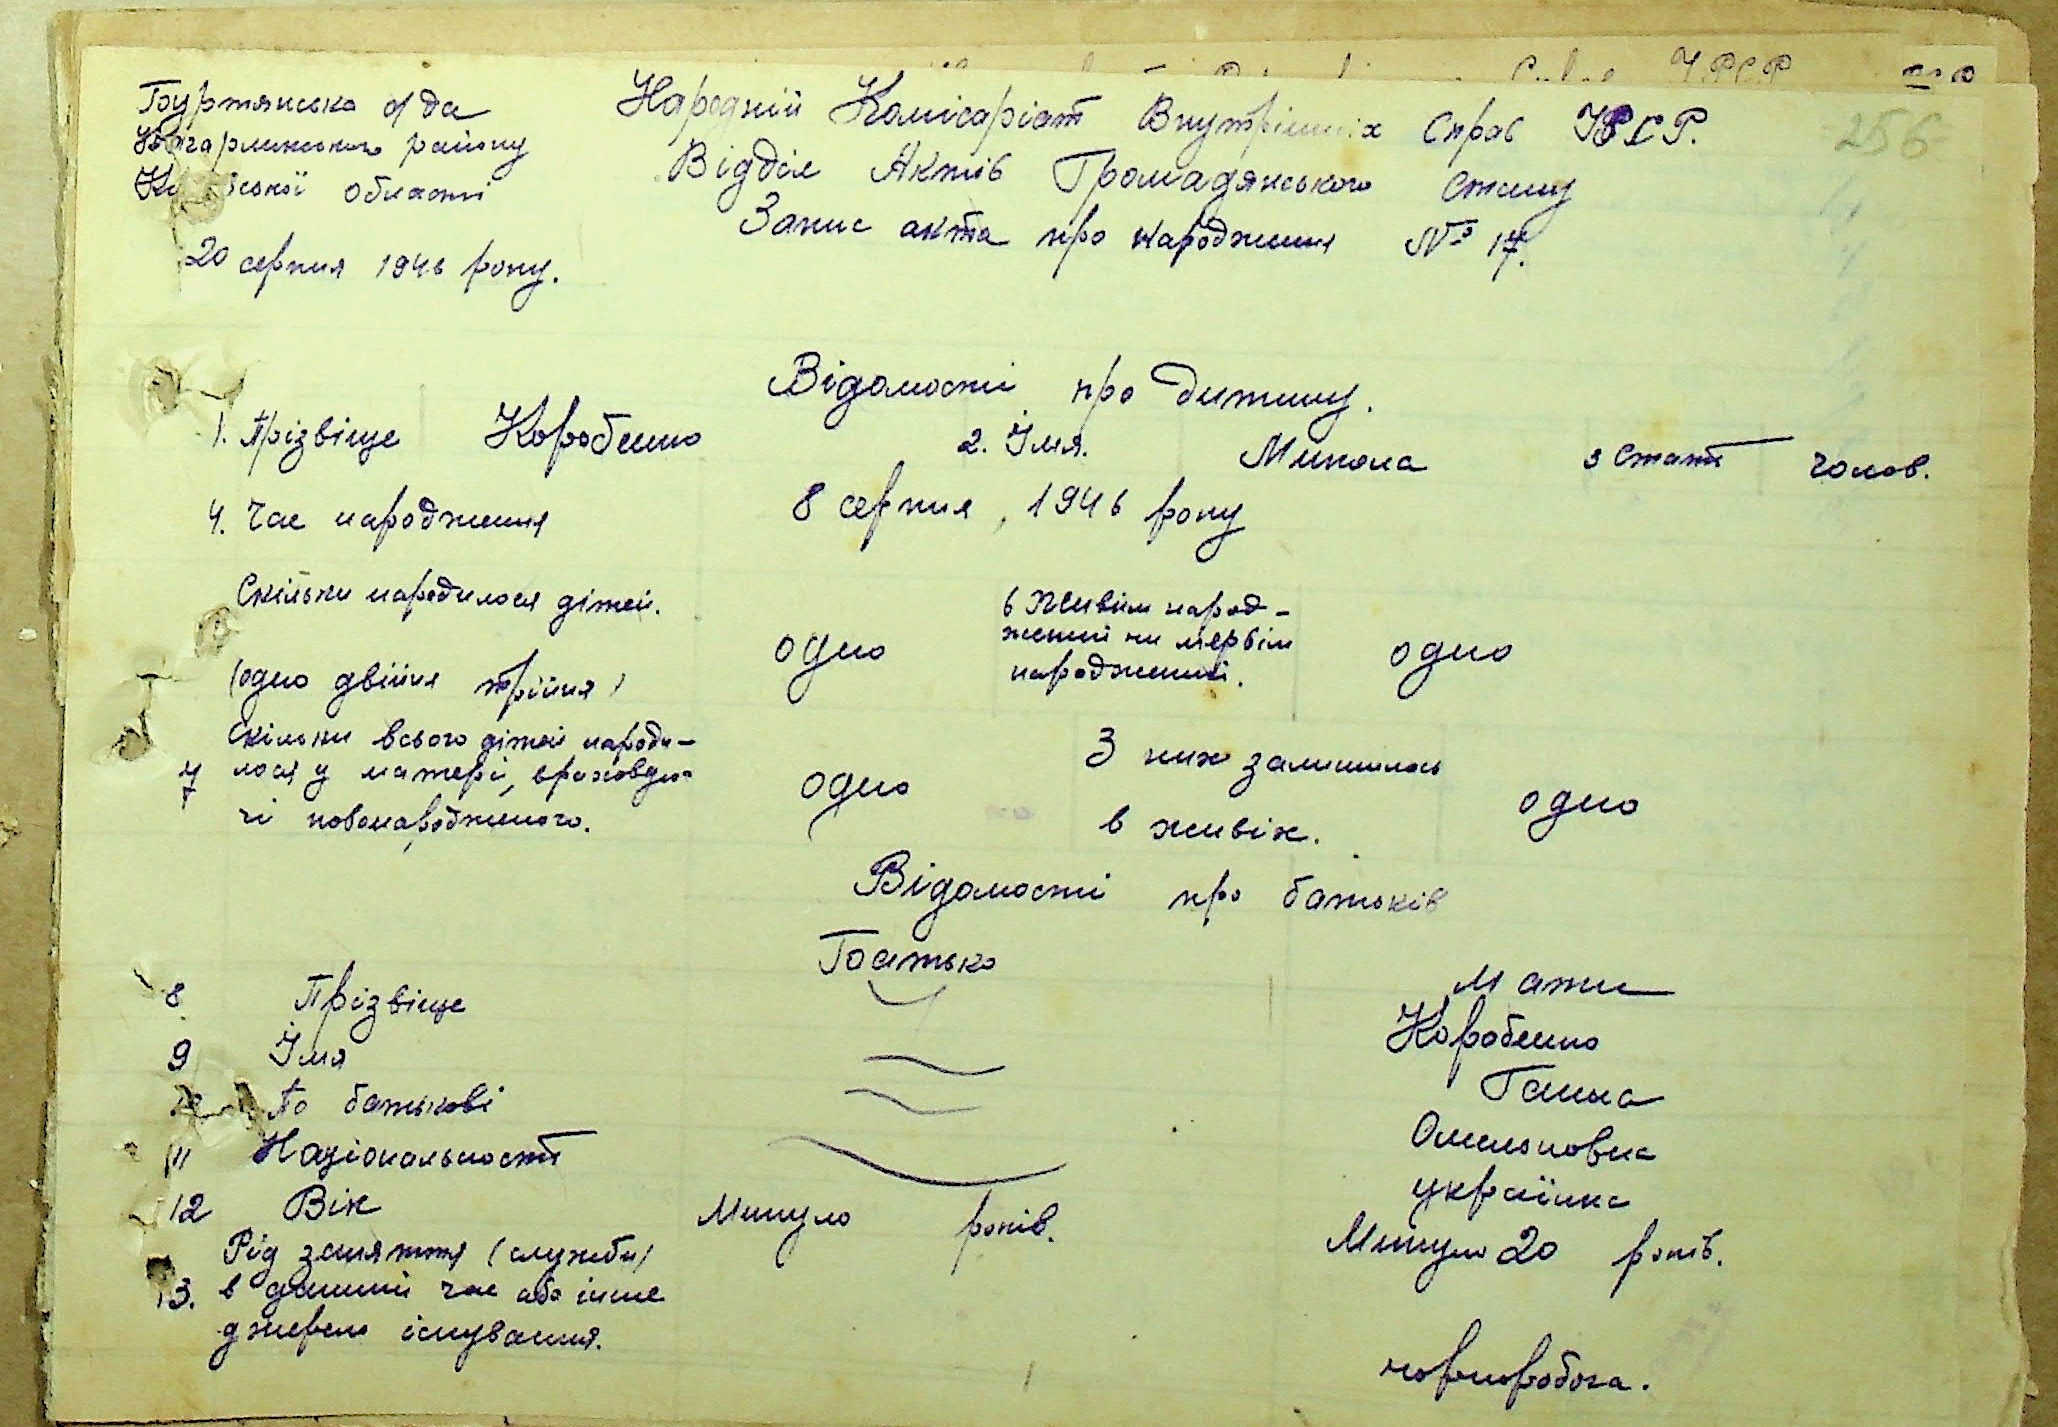 Буртянська с/рада
Кагарлицького району
Київської області
20 серпня 1946 року.
Народній Комісаріат Внутрішніх Справ УРСР.
256
Відділ Актів Громадянського Стану
Запис акта про народження № 17.
Відомості про дитину.
1. Прізвіще Коробенко 2. Імя. Микола 3 Стать чолов.
4. Час народження 8 серпня, 1946 року
Скільки народилося дітей.
(одно двійня трійня)
одно
6 Живим народ-
жений чи мертвим
народжений.
одно
Скільки всього дітей народи-
7 лося у матері, враховую-
чі новонародженого.
одно
З них залишилось
в живіх.
одно
Відомості про батьків
Батько Мати
8 Прізвіще Коробенко
9 Імя Ганна
10 По батькові Омельковна
11 Національность українка
12 Вік Минуло років. Минуло 20 років.
Рід заняття (служби)
13. в данний час або інше
джерело існування.
чорноробоча.